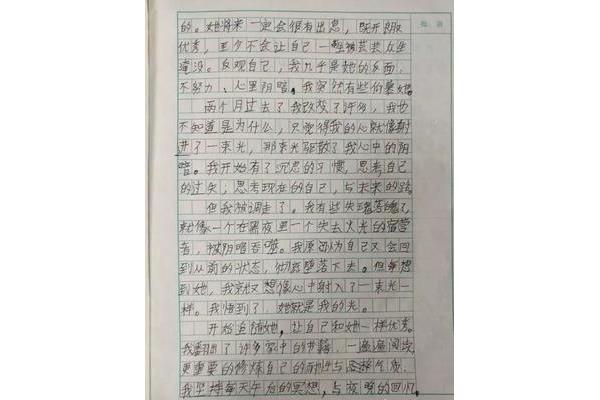 批语
的。她将来一定会很有出息，既开朗又
优秀，至少不会让自己一生被芸芸众生
淹没。反观自己，我几乎是她的反面，
不努力、心里阴暗，我突然有些仰慕她。
两个月过去了我改变了许多，我也
不知道是为什么，只觉得我的心就像射
进了一束光，那束光驱散了我心中的阴
暗。我开始有了沉思的习惯，思考自己
的过失，思考现在的自己，与未来的路
但我被调走了。我有些失魂落魄了，
就像一个在黑夜里一个失去火光的宿营
者，被阴暗吞噬。我原以为自己又会回
到从前的状态，彻底堕落下去。但每想
到她，我就又想像心中射入了一束光一
样。我悟到了，她就是我的光。
开始追随她，让自己和她一样优秀。
我翻出了许多家中的书籍，一遍遍阅读
更重要的修炼自己的耐性与气质，
我坚持每天午后的冥想，与夜晚的回忆，